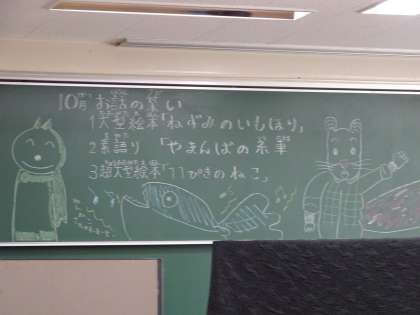 10月 お話の集い
1 大型絵本「ねずみのいもほり」
2 素語り 「やまんばの糸車
3 超大型絵本「11ぴきのねこ」